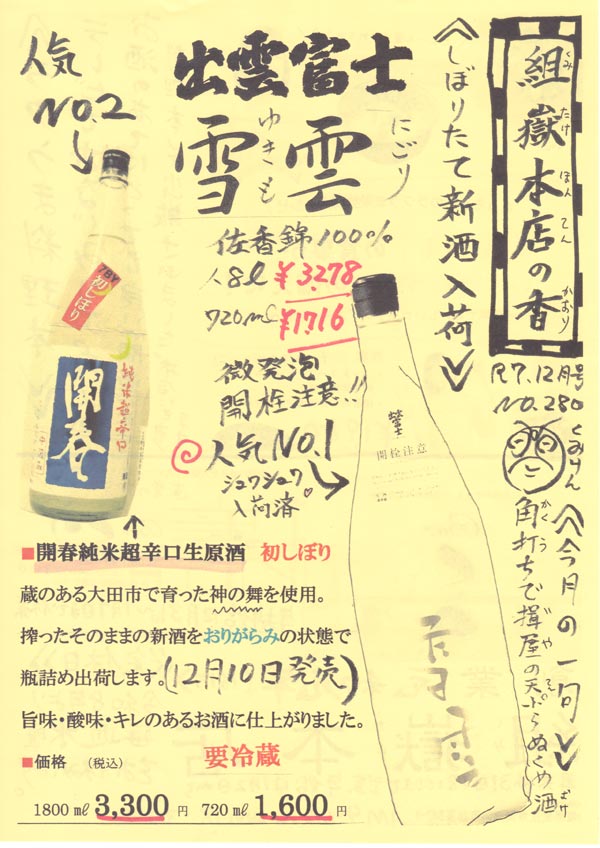 組嶽本店の香
くみたけほんてんかおり
R7.12月号
NO.280
くみけん
≪今月の一句≫
角打ちで揖屋の天ぷらぬくめ酒
≪しぼりたて新酒入荷≫
出雲富士
雪雲
ゆきぐも
にごり
佐香錦100%
1.8ℓ ¥3,278
720mℓ ¥1716
微発泡
開栓注意!!
人気NO.1
シュワシュワ
入荷済
開栓注意
人気
NO.2
7BY
初しぼり
純米超辛口
開春
■開春純米超辛口生原酒 初しぼり
蔵のある大田市で育った神の舞を使用。
搾ったそのままの新酒をおりがらみの状態で
瓶詰め出荷します。(12月10日発売)
旨味・酸味・キレのあるお酒に仕上がりました。
■価格 (税込) 要冷蔵
1800㎖ 3,300円 720㎖ 1,600円